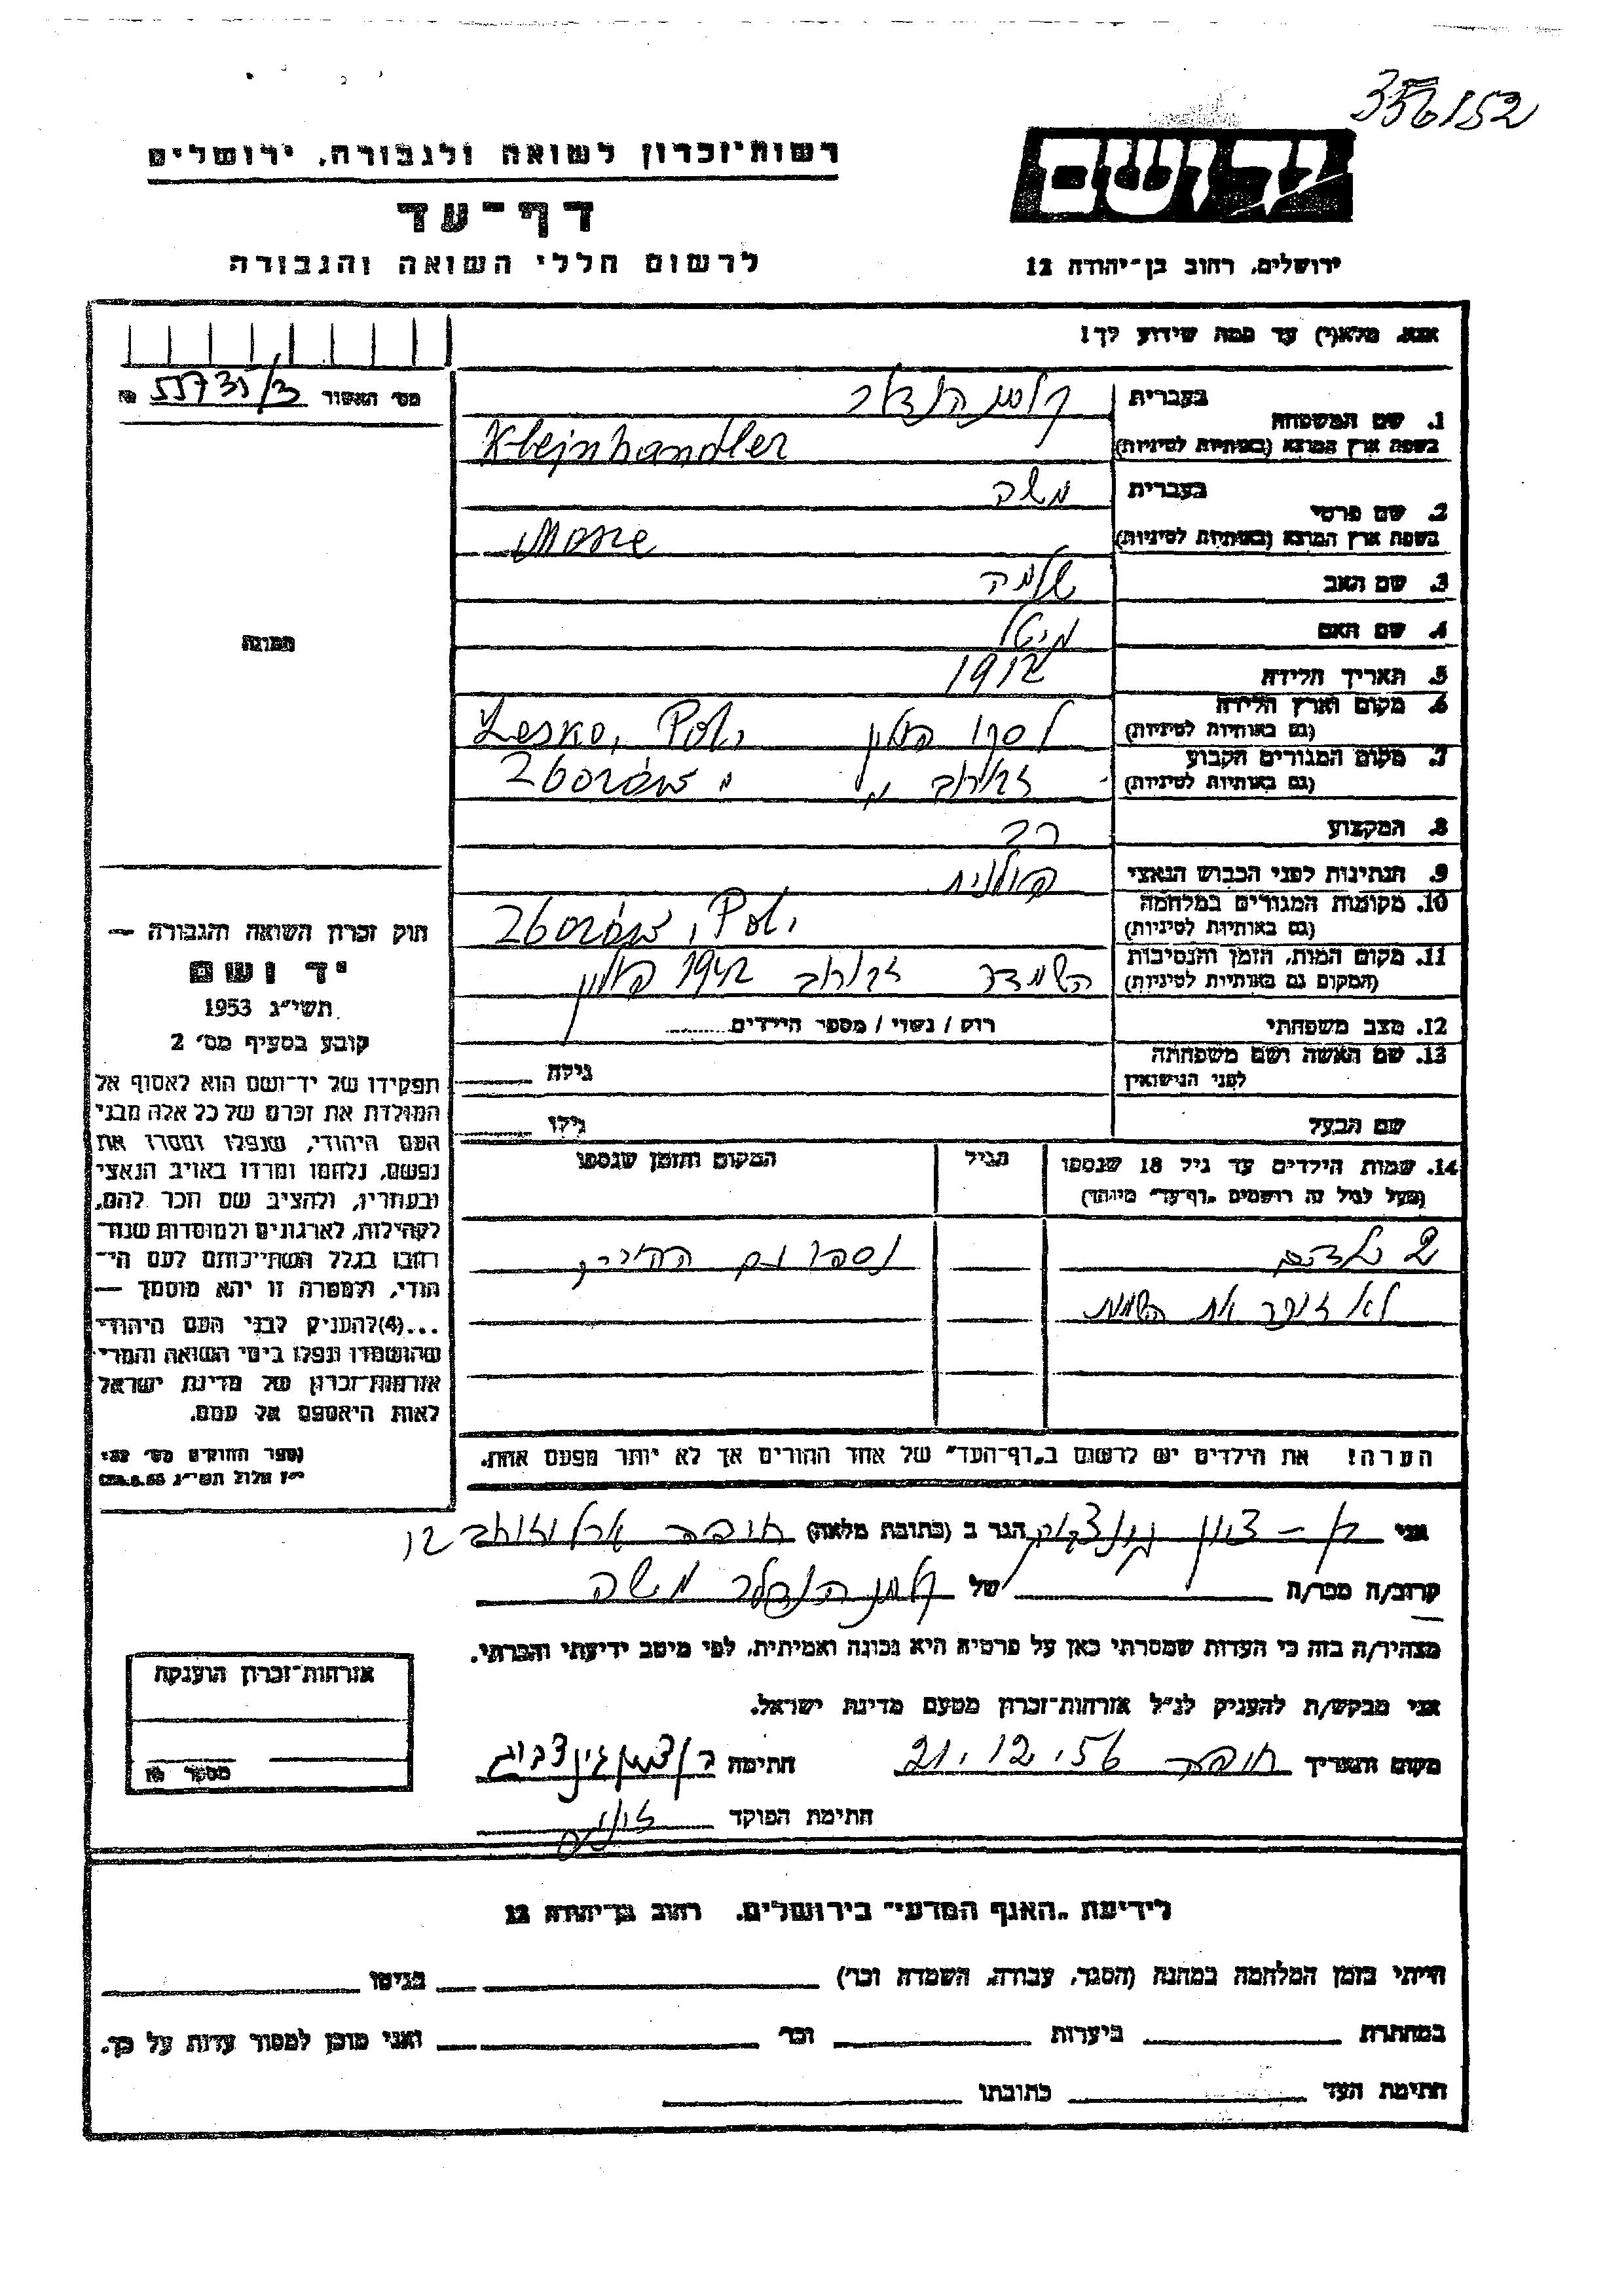 356152
רשות־זכרון לשואה ולגבורה, ירושלים
יד ושם
דף־עד
לרשום חללי השואה והגבורה
ירושלים, רחוב בן־יהודה 12
אנא, מלא(י) עד כמה שידוע לך!
מס׳ האשור № 55731/3
1. שם המשפחה בעברית קליינהנדלר
בשפת ארץ המוצא (באותיות לטיניות) Klejnhandler
2. שם פרטי בעברית משה
בשפת ארץ המוצא (באותיות לטיניות) Mosze
3. שם האב שלמה
4. שם האם
5. תאריך הלידה 1912
6. מקום וארץ הלידה (גם באותיות לטיניות) לסקו פולין Lesko, Pol.
7. מקום המגורים הקבוע (גם באותיות לטיניות) זבורוב Zborów
8. המקצוע רב
9. הנתינות לפני הכבוש הנאצי פולנית
10. מקומות המגורים במלחמה (גם באותיות לטיניות) Zborów, Pol.
11. מקום המות, הזמן והנסיבות (המקום גם באותיות לטיניות) הושמד זבורוב 1942 פולין
12. מצב משפחתי רוק / נשוי / מספר הילדים
13. שם האשה ושם משפחתה לפני הנישואין גילה
שם הבעל גילו
14. שמות הילדים עד גיל 18 שנספו (מעל לגיל זה רושמים „דף־עד" מיוחד) הגיל המקום והזמן שנספו
2 ילדים נספו עם ההורים
לא זוכר את השמות
הערה! את הילדים יש לרשום ב„דף־העד" של אחד ההורים אך לא יותר מפעם אחת.
תמונה
חוק זכרון השואה והגבורה —
יד ושם
תשי״ג 1953
קובע בסעיף מס׳ 2
תפקידו של יד־ושם הוא לאסוף אל
המולדת את זכרם של כל אלה מבני
העם היהודי, שנפלו ומסרו את
נפשם, נלחמו ומרדו באויב הנאצי
ובעוזריו, ולהציב שם וזכר להם,
לקהילות, לארגונים ולמוסדות שנח־
רבו בגלל השתייכותם לעם הי־
הודי, ולמטרה זו יהא מוסמך —
...(4) להעניק לבני העם היהודי
שהושמדו ונפלו בימי השואה והמרי
אזרחות־זכרון של מדינת ישראל
לאות היאספם אל עמם.
(ספר החוקים מס׳ 132
י״ז אלול תשי״ג 28.8.53)
אני בן-ציון גינצבורג הגר ב (כתובת מלאה) חיפה ארלוזורוב
קרוב/ה מכר/ה של קליינהנדלר משה
מצהיר/ה בזה כי העדות שמסרתי כאן על פרטיה היא נכונה ואמיתית, לפי מיטב ידיעתי והכרתי.
אני מבקש/ת להעניק לנ״ל אזרחות־זכרון מטעם מדינת ישראל.
מקום ותאריך חיפה 21.12.56 חתימה בן ציון גינצבורג
חתימת הפוקד
אזרחות־זכרון הוענקה
מספר №
לידיעת „האגף המדעי" בירושלים. רחוב בן־יהודה 12
הייתי בזמן המלחמה במחנה (הסגר, עבודה, השמדה וכו׳) בגיטו
במחתרת ביערות וכו׳ ואני מוכן למסור עדות על כך.
חתימת העד כתובתו